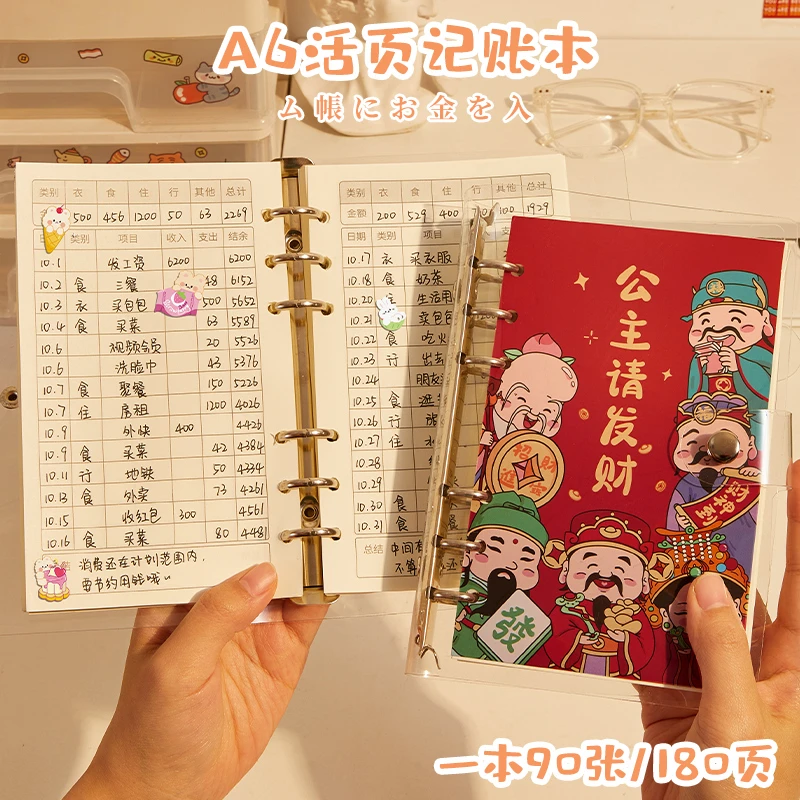 A6活页记账本
ム帳にお金を入
类别 衣 食 住 行 其他 总计
500 456 1200 50 63 2269
类别 项目 收入 支出 结余
10.1 发工资 6200 6200
10.2 食 三餐 48 6152
10.3 衣 买包包 500 5652
10.4 食 买菜 63 5589
10.6 视频会员 20 5526
10.6 洗脸巾 43 5376
10.7 食 聚餐 150 5226
10.7 住 房租 1200 4026
10.9 外快 400 4426
10.9 食 买菜 42 4384
10.11 行 地铁 50 4334
10.13 食 外卖 73 4261
10.15 收红包 300 4561
10.16 食 买菜 80 4481
消费还在计划范围内,
要节约用钱哦~
类别 衣 食 住 行 其他 总计
金额 200 529 400 100 1929
日期 类别 项目
10.17 衣 买衣服
10.18 食 奶茶
10.20 生活用
10.21 卖包包
10.22 食 吃火
10.23 行 出去
10.24 朋友
10.25 食
10.26 行
10.27 住
10.28
10.29
10.30 食
10.31 食
总结 中间有
不算
公主请发财
招财
發
财神到
一本90张/180页